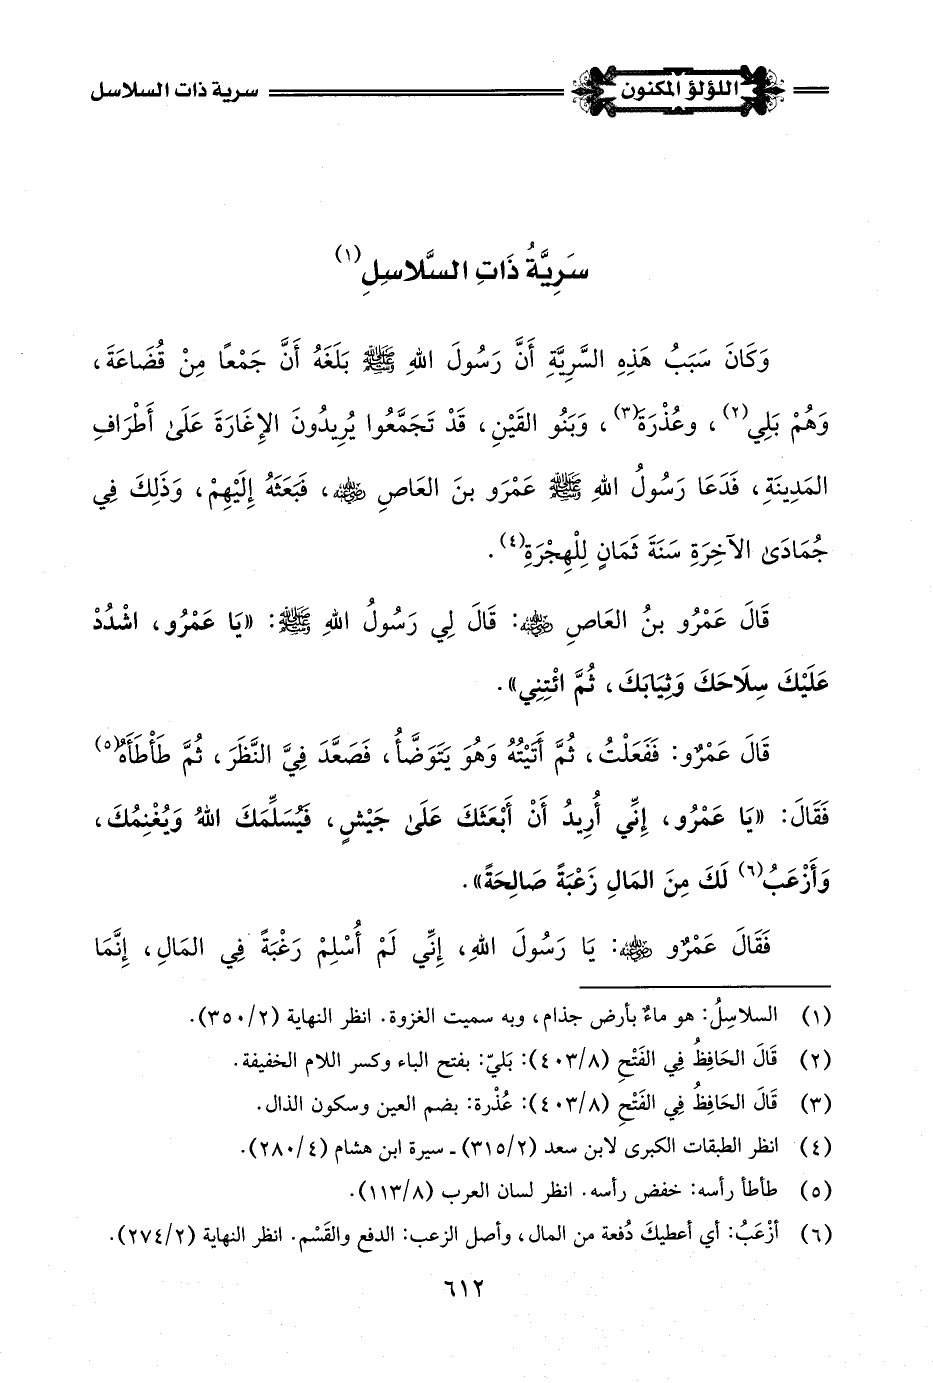 اللؤلؤ المكنون سرية ذات السلاسل
سَرِيَّةُ ذَاتِ السَّلاسِلِ(١)
وَكَانَ سَبَبُ هَذِهِ السَّرِيَّةِ أَنَّ رَسُولَ اللهِ ﷺ بَلَغَهُ أَنَّ جَمْعًا مِنْ قُضَاعَةَ،
وَهُمْ بَلِي(٢)، وعُذْرَةَ(٣)، وَبَنُو القَيْنِ، قَدْ تَجَمَّعُوا يُرِيدُونَ الإِغَارَةَ عَلَىٰ أَطْرَافِ
المَدِينَةِ، فَدَعَا رَسُولُ اللهِ ﷺ عَمْرَو بنَ العَاصِ رضي الله عنه، فَبَعَثَهُ إِلَيْهِمْ، وَذَلِكَ فِي
جُمَادَىٰ الآخِرَةِ سَنَةَ ثَمَانٍ لِلْهِجْرَةِ(٤).
قَالَ عَمْرُو بنُ العَاصِ رضي الله عنه: قَالَ لِي رَسُولُ اللهِ ﷺ: «يَا عَمْرُو، اشْدُدْ
عَلَيْكَ سِلَاحَكَ وَثِيَابَكَ، ثُمَّ ائْتِنِي».
قَالَ عَمْرٌو: فَفَعَلْتُ، ثُمَّ أَتَيْتُهُ وَهُوَ يَتَوَضَّأُ، فَصَعَّدَ فِيَّ النَّظَرَ، ثُمَّ طَأْطَأَهُ(٥)
فَقَالَ: «يَا عَمْرُو، إِنِّي أُرِيدُ أَنْ أَبْعَثَكَ عَلَىٰ جَيْشٍ، فَيُسَلِّمَكَ اللهُ وَيُغْنِمُكَ،
وَأَزْعَبُ(٦) لَكَ مِنَ المَالِ زَعْبَةً صَالِحَةً».
فَقَالَ عَمْرٌو رضي الله عنه: يَا رَسُولَ اللهِ، إِنِّي لَمْ أُسْلِمْ رَغْبَةً فِي المَالِ، إِنَّمَا
(١) السلاسِلُ: هو ماءٌ بأرض جذام، وبه سميت الغزوة. انظر النهاية (٢/٣٥٠).
(٢) قَالَ الحَافِظُ فِي الفَتْحِ (٨/٤٠٣): بَليّ: بفتح الباء وكسر اللام الخفيفة.
(٣) قَالَ الحَافِظُ فِي الفَتْحِ (٨/٤٠٣): عُذْرة: بضم العين وسكون الذال.
(٤) انظر الطبقات الكبرى لابن سعد (٢/٣١٥) ـ سيرة ابن هشام (٤/٢٨٠).
(٥) طأطأ رأسه: خفض رأسه. انظر لسان العرب (٨/١١٣).
(٦) أزْعَبُ: أي أعطيكَ دُفعة من المال، وأصل الزعب: الدفع والقَسْم. انظر النهاية (٢/٢٧٤).
٦١٢